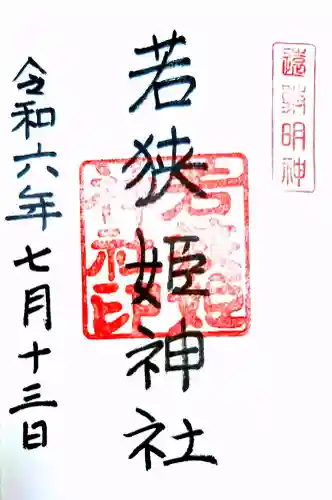 遠敷明神
若狭姫神社
若狭姫神社印
令和六年七月十三日